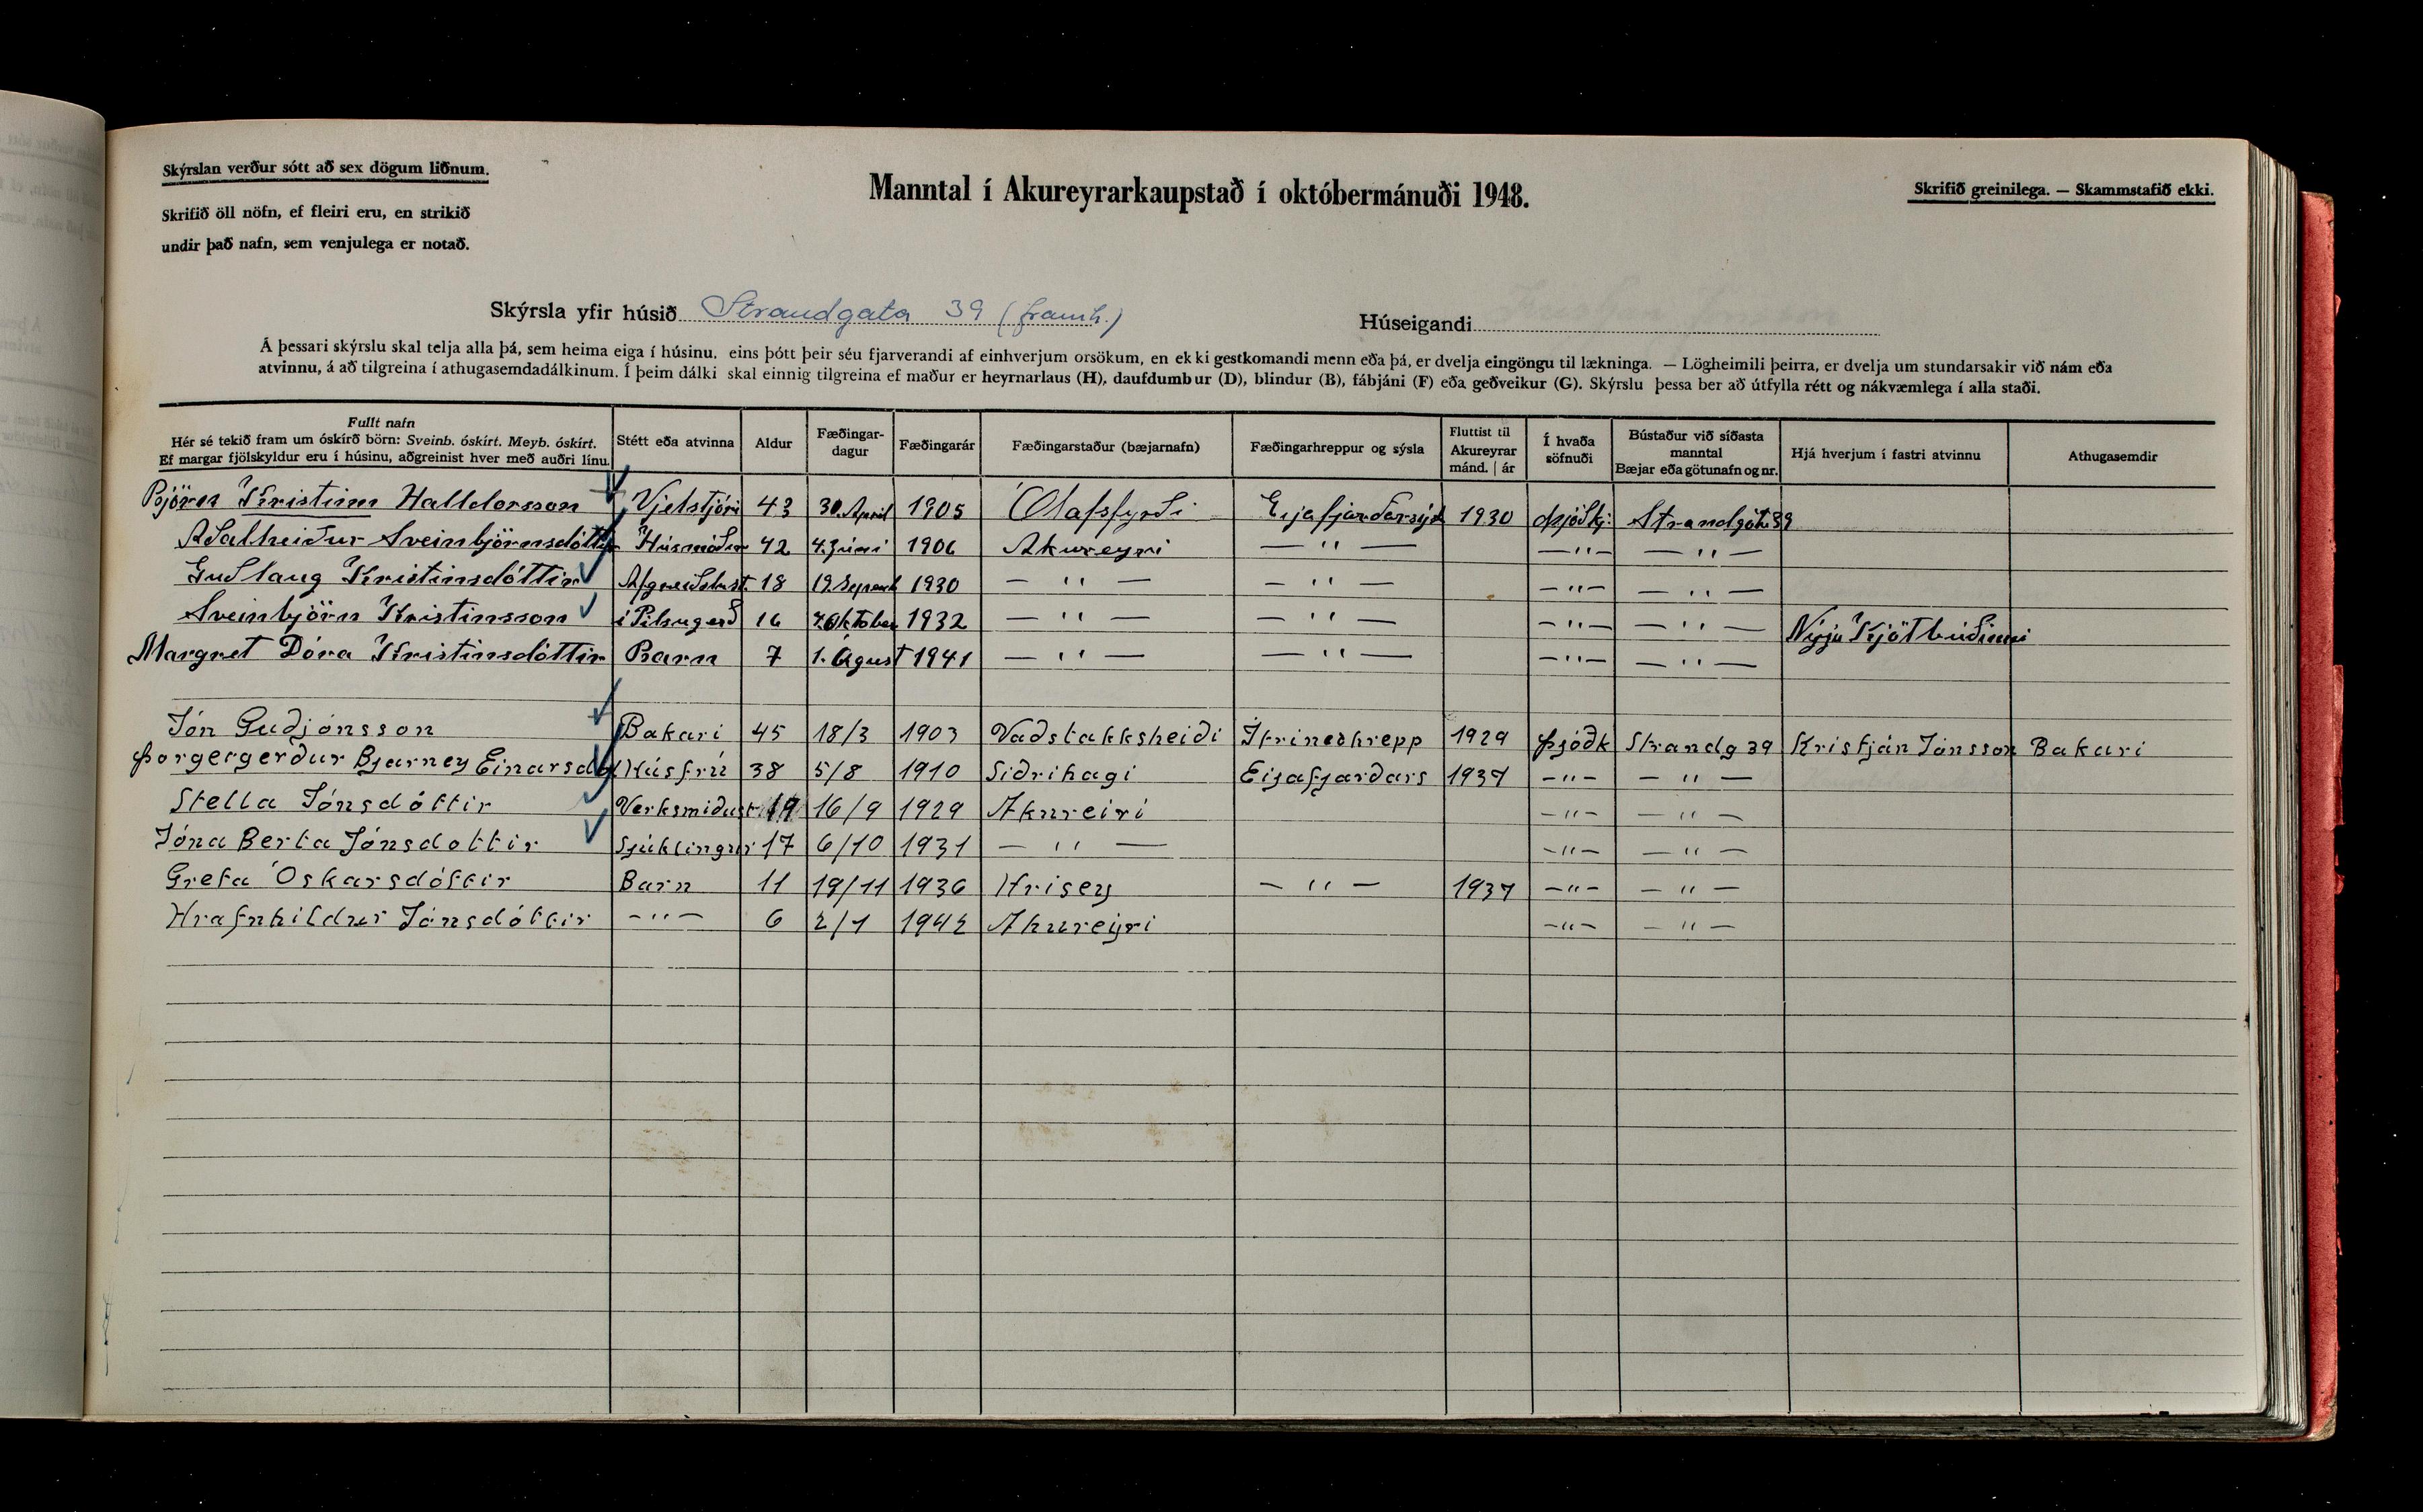 Skýrslan verður sótt að sex dögum liðnum.
Skrifið öll nöfn, ef fleiri eru, en strikið
undir það nafn, sem venjulega er notað.
Manntal í Akureyrarkaupstað í októbermánuði 1948.
Skrifið greinilega. — Skammstafið ekki.
Skýrsla yfir húsið Strandgata 39 (framh.)
Húseigandi
Á þessari skýrslu skal telja alla þá, sem heima eiga í húsinu, eins þótt þeir séu fjarverandi af einhverjum orsökum, en ekki gestkomandi menn eða þá, er dvelja eingöngu til lækninga. — Lögheimili þeirra, er dvelja um stundarsakir við nám eða
atvinnu, á að tilgreina í athugasemdadálkinum. Í þeim dálki skal einnig tilgreina ef maður er heyrnarlaus (H), daufdumbur (D), blindur (B), fábjáni (F) eða geðveikur (G). Skýrslu þessa ber að útfylla rétt og nákvæmlega í alla staði.
Fullt nafn Hér sé tekið fram um óskírð börn: Sveinb. óskírt. Meyb. óskírt. Ef margar fjölskyldur eru í húsinu, aðgreinist hver með auðri línu. Stétt eða atvinna Aldur Fæðingar-dagur Fæðingarár Fæðingarstaður (bæjarnafn) Fæðingarhreppur og sýsla Fluttist til Akureyrar mánd. | ár Í hvaða söfnuði Bústaður við síðasta manntal Bæjar eða götunafn og nr. Hjá hverjum í fastri atvinnu Athugasemdir
Björn Kristinn Halldorsson Vjelstjóri 43 30. April 1905 Ólafsfyrði Eyjafjarðarsýsl 1930 Þjóðkj: Strandgöt 39
Aðalheiður Sveinbjörnsdóttir Húsmóðir 42 4. Júni 1906 Akureyri — " — — " — — " — — " —
Guðlaug Kristinsdóttir Afgreiðslust. 18 19. 1930 — " — — " — — " — — " —
Sveinbjörn Kristinsson í Pilsugerð 16 7. Oktober 1932 — " — — " — — " — — " — Nyju Kjötbúðinni
Margret Dóra Kristinsdóttir Barn 7 1. Águst 1941 — " — — " — — " — — " —
Jón Guðjónsson Bakari 45 18/3 1903 Vaðstakksheiði 1929 Þjóðk Strandg 39 Kristján Jónsson Bakari
Þorgergerður Bjarney Einarsd Húsfrú 38 5/8 1910 Siðrihagi Eijafjarðars 1937 — " — — " —
Stella Jónsdóttir Verksmiðust 19 16/9 1929 Akureiri — " — — " —
Jóna Berta Jónsdottir Sjúklingur 17 6/10 1931 — " — — " — — " —
Greta Óskarsdóttir Barn 11 19/11 1936 Hrisey — " — 1937 — " — — " —
Hrafnhildur Jónsdóttir — " — 6 2/1 1942 Akureijri — " — — " —